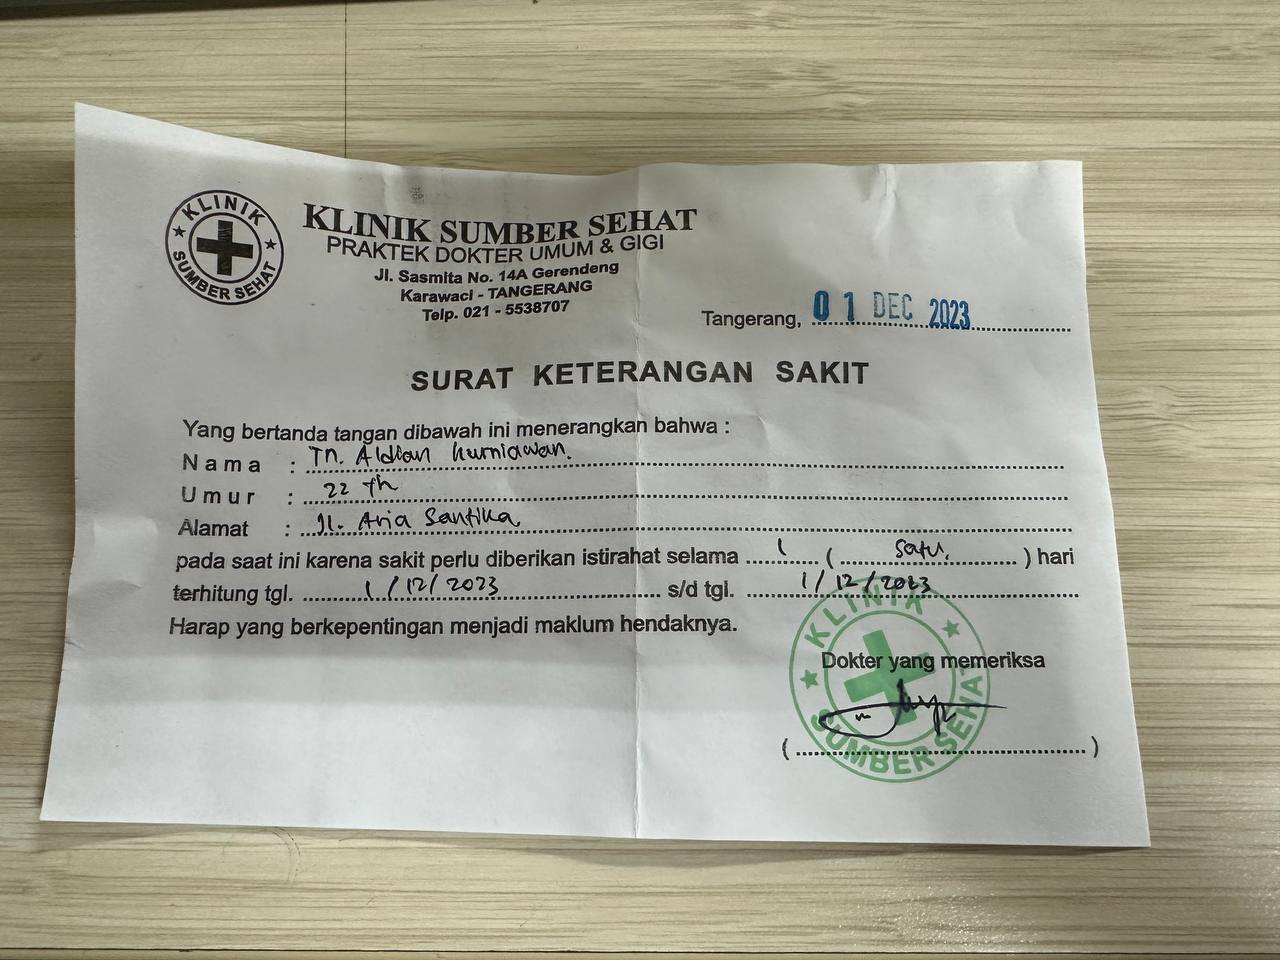 KLINIK
SUMBER SEHAT
KLINIK SUMBER SEHAT
PRAKTEK DOKTER UMUM & GIGI
Jl. Sasmita No. 14A Gerendeng
Karawaci - TANGERANG
Telp. 021 - 5538707
Tangerang, 01 DEC 2023
SURAT KETERANGAN SAKIT
Yang bertanda tangan dibawah ini menerangkan bahwa :
Nama : Tn. Aldian Kurniawan.
Umur : 22 th
Alamat : Jl. Aria Santika
pada saat ini karena sakit perlu diberikan istirahat selama 1 ( satu. ) hari
terhitung tgl. 1/12/2023 s/d tgl. 1/12/2023
Harap yang berkepentingan menjadi maklum hendaknya.
KLINIK
Dokter yang memeriksa
SUMBER SEHAT